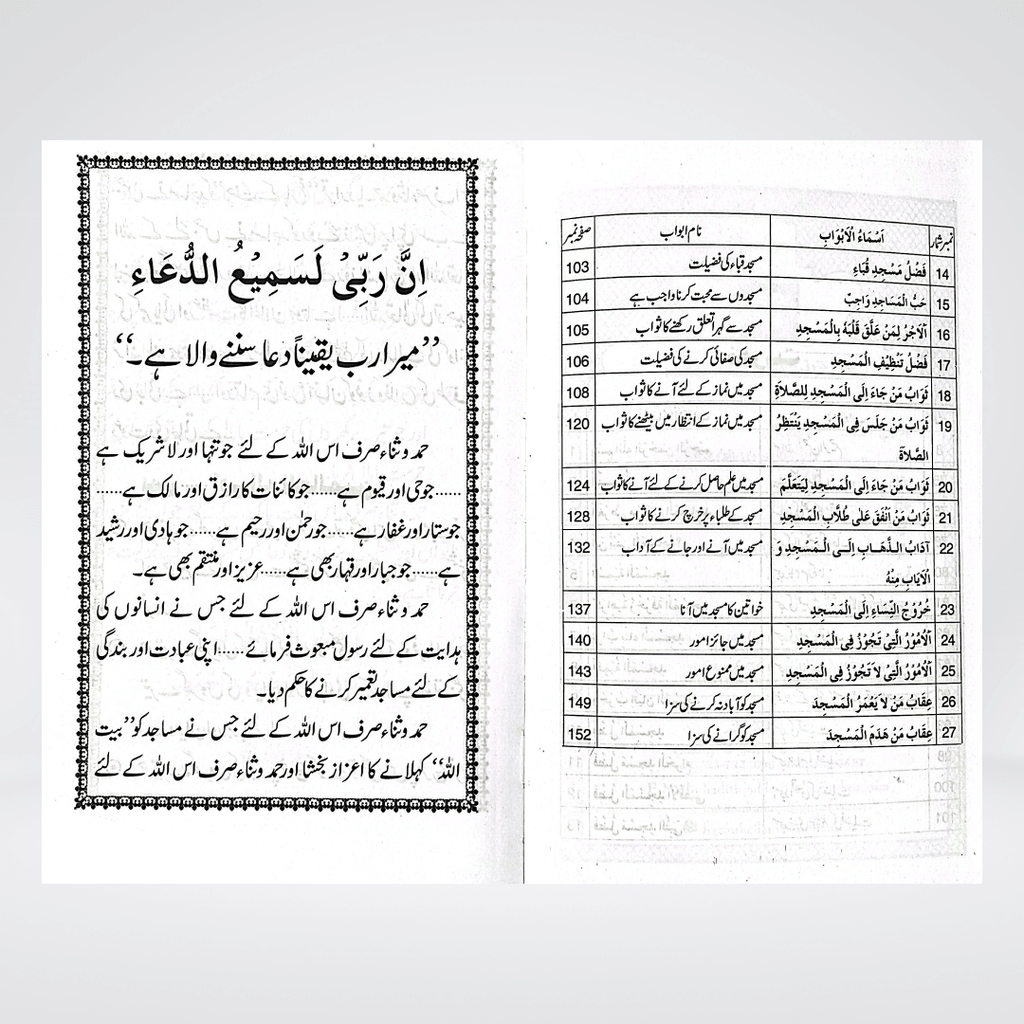 نمبر شمار اَسْمَاءُ الْاَبْوَابِ نام ابواب صفحہ نمبر
14 فَضْلُ مَسْجِدِ قُبَاءِ مسجد قباء کی فضیلت 103
15 حُبُّ الْمَسَاجِدِ وَاجِبٌ مسجدوں سے محبت کرنا واجب ہے 104
16 اَلْاَجْرُ لِمَنْ عَلَّقَ قَلْبَهُ بِالْمَسْجِدِ مسجد سے گہرا تعلق رکھنے کا ثواب 105
17 فَضْلُ تَنْظِيْفِ الْمَسْجِدِ مسجد کی صفائی کرنے کی فضیلت 106
18 ثَوَابُ مَنْ جَاءَ اِلَى الْمَسْجِدِ لِلصَّلاَةِ مسجد میں نماز کے لئے آنے کا ثواب 108
19 ثَوَابُ مَنْ جَلَسَ فِى الْمَسْجِدِ يَنْتَظِرُ مسجد میں نماز کے انتظار میں بیٹھنے کا ثواب 120
الصَّلاَةَ
20 ثَوَابُ مَنْ جَاءَ اِلَى الْمَسْجِدِ لِيَتَعَلَّمَ مسجد میں علم حاصل کرنے کے لئے آنے کا ثواب 124
21 ثَوَابُ مَنْ اَنْفَقَ عَلٰى طُلَّابِ الْمَسْجِدِ مسجد کے طلباء پر خرچ کرنے کا ثواب 128
22 آدَابُ الـذَّهَـابِ اِلَـى الْـمَـسْجِدِ وَ مسجد میں آنے اور جانے کے آداب 132
الْاَيَابِ مِنْهُ
23 خُرُوْجُ النِّسَاءِ اِلَى الْمَسْجِدِ خواتین کا مسجد میں آنا 137
24 اَلْاُمُوْرُ الَّتِىْ تَجُوْزُ فِى الْمَسْجِدِ مسجد میں جائز امور 140
25 اَلْاُمُوْرُ الَّتِىْ لاَ تَجُوْزُ فِى الْمَسْجِدِ مسجد میں ممنوع امور 143
26 عِقَابُ مَنْ لاَ يَعْمُرُ الْمَسْجِدَ مسجد کو آباد نہ کرنے کی سزا 149
27 عِقَابُ مَنْ هَدَمَ الْمَسْجِدَ مسجد کو گرانے کی سزا 152
اِنَّ رَبِّىْ لَسَمِيْعُ الدُّعَاءِ
’’میرا رب یقیناً دعا سننے والا ہے۔‘‘
حمد و ثناء صرف اس اللہ کے لئے جو تنہا اور لا شریک ہے
......جو حی اور قیوم ہے......جو کائنات کا رازق اور مالک ہے......
جو ستار اور غفار ہے......جو رحمٰن اور رحیم ہے......جو ہادی اور رشید
ہے......جو جبار اور قہار بھی ہے......عزیز اور منتقم بھی ہے۔
حمد و ثناء صرف اس اللہ کے لئے جس نے انسانوں کی
ہدایت کے لئے رسول مبعوث فرمائے......اپنی عبادت اور بندگی
کے لئے مساجد تعمیر کرنے کا حکم دیا۔
حمد و ثناء صرف اس اللہ کے لئے جس نے مساجد کو ’’بیت
اللہ‘‘ کہلانے کا اعزاز بخشا اور حمد و ثناء صرف اس اللہ کے لئے